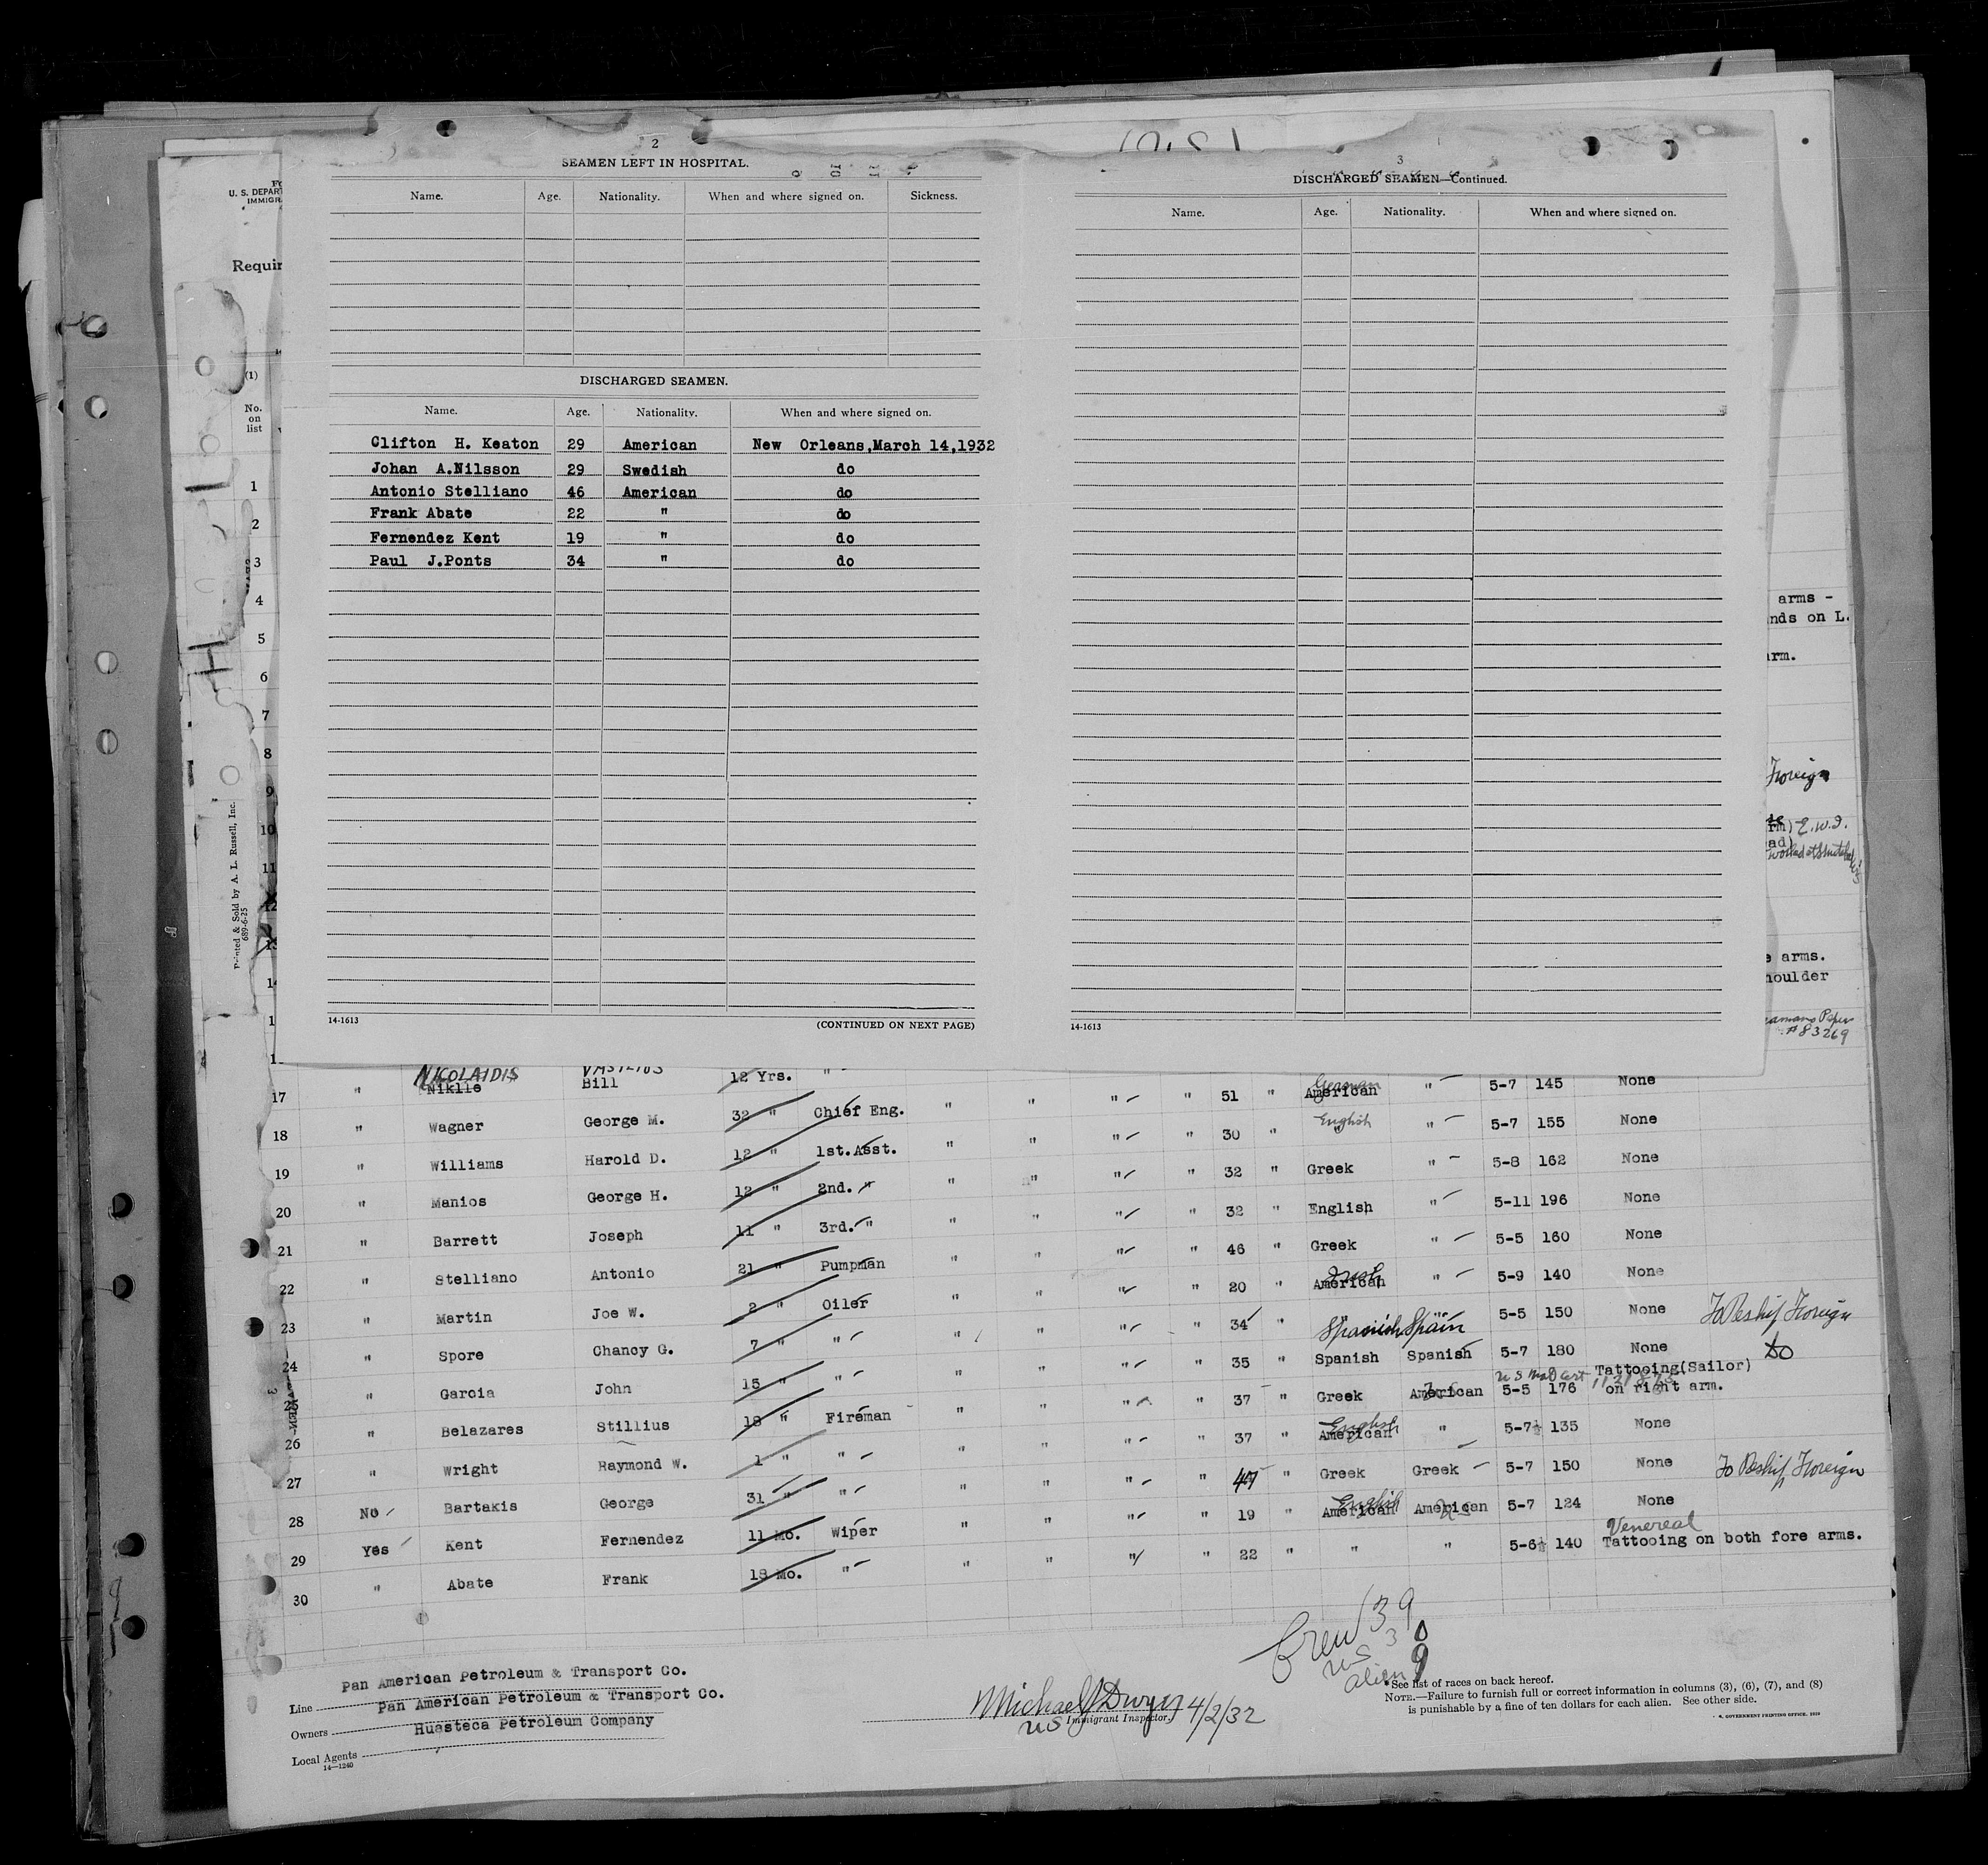 2
SEAMEN LEFT IN HOSPITAL.
Name. Age. Nationality. When and where signed on. Sickness.
DISCHARGED SEAMEN.
Name. Age. Nationality. When and where signed on.
Clifton H. Keaton 29 American New Orleans,March 14,1932
Johan A.Nilsson 29 Swedish do
Antonio Stelliano 46 American do
Frank Abate 22 " do
Fernendez Kent 19 " do
Paul J.Ponts 34 " do
14-1613 (CONTINUED ON NEXT PAGE)
3
DISCHARGED SEAMEN—Continued.
Name. Age. Nationality. When and where signed on.
14-1613
U. S. DEPART
IMMIGR
Requir
(1)
No.
on
list
1
2
3
4
5
6
7
8
9
10
11
12
13
Printed & Sold by A. L. Russell, Inc.
689-6-25
arms -
nds on L.
arm.
Foreign
E.W.I.
arms.
houlder
Seamans Paper
#83269
17 " NICOLAIDIS Niklle VASILIOS Bill 12 Yrs. "
18 " Wagner George M. 32 " Chief Eng. " " " " 51 " German American " 5-7 145 None
19 " Williams Harold D. 12 " 1st.Asst. " " " " 30 " English " 5-7 155 None
20 " Manios George H. 12 " 2nd. " " " " " 32 " Greek " 5-8 162 None
21 " Barrett Joseph 11 " 3rd. " " " " " 32 " English " 5-11 196 None
22 " Stelliano Antonio 21 " Pumpman " " " " 46 " Greek " 5-5 160 None
23 " Martin Joe W. 2 " Oiler " " " " 20 " Irish American " 5-9 140 None
24 " Spore Chancy G. 7 " " " " " " 34 " Spanish Spain 5-5 150 None To Reship Foreign
" Garcia John 15 " " " " " " 35 " Spanish Spanish 5-7 180 None do
26 " Belazares Stillius 18 " Fireman " " " " 37 " Greek American 5-5 176 Tattooing(Sailor)
on right arm.
27 " Wright Raymond W. 1 " " " " " " 37 " English American " 5-7½ 135 None
28 No Bartakis George 31 " " " " " " 47 " Greek Greek 5-7 150 None To Reship Foreign
29 Yes Kent Fernendez 11 Mo. Wiper " " " " 19 " English American American US 5-7 124 None
30 " Abate Frank 18 Mo. " " " " " 22 " " " 5-6½ 140 Venereal
Tattooing on both fore arms.
Crew 39
US 30
alien 9
Line Pan American Petroleum & Transport Co.
Owners Pan American Petroleum & Transport Co.
Local Agents Huasteca Petroleum Company
14—1240
Michael J Dwyer 4/2/32
US Immigrant Inspector.
*See list of races on back hereof.
NOTE.—Failure to furnish full or correct information in columns (3), (6), (7), and (8)
is punishable by a fine of ten dollars for each alien. See other side.
GOVERNMENT PRINTING OFFICE